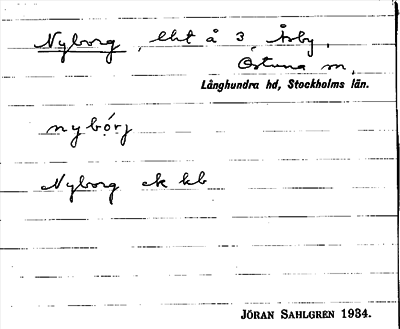 Nyborg, lht å 3 Årby,
Östuna sn,
Långhundra hd, Stockholms län.
nybórj
Nyborg ek kb
JÖRAN SAHLGREN 1934.